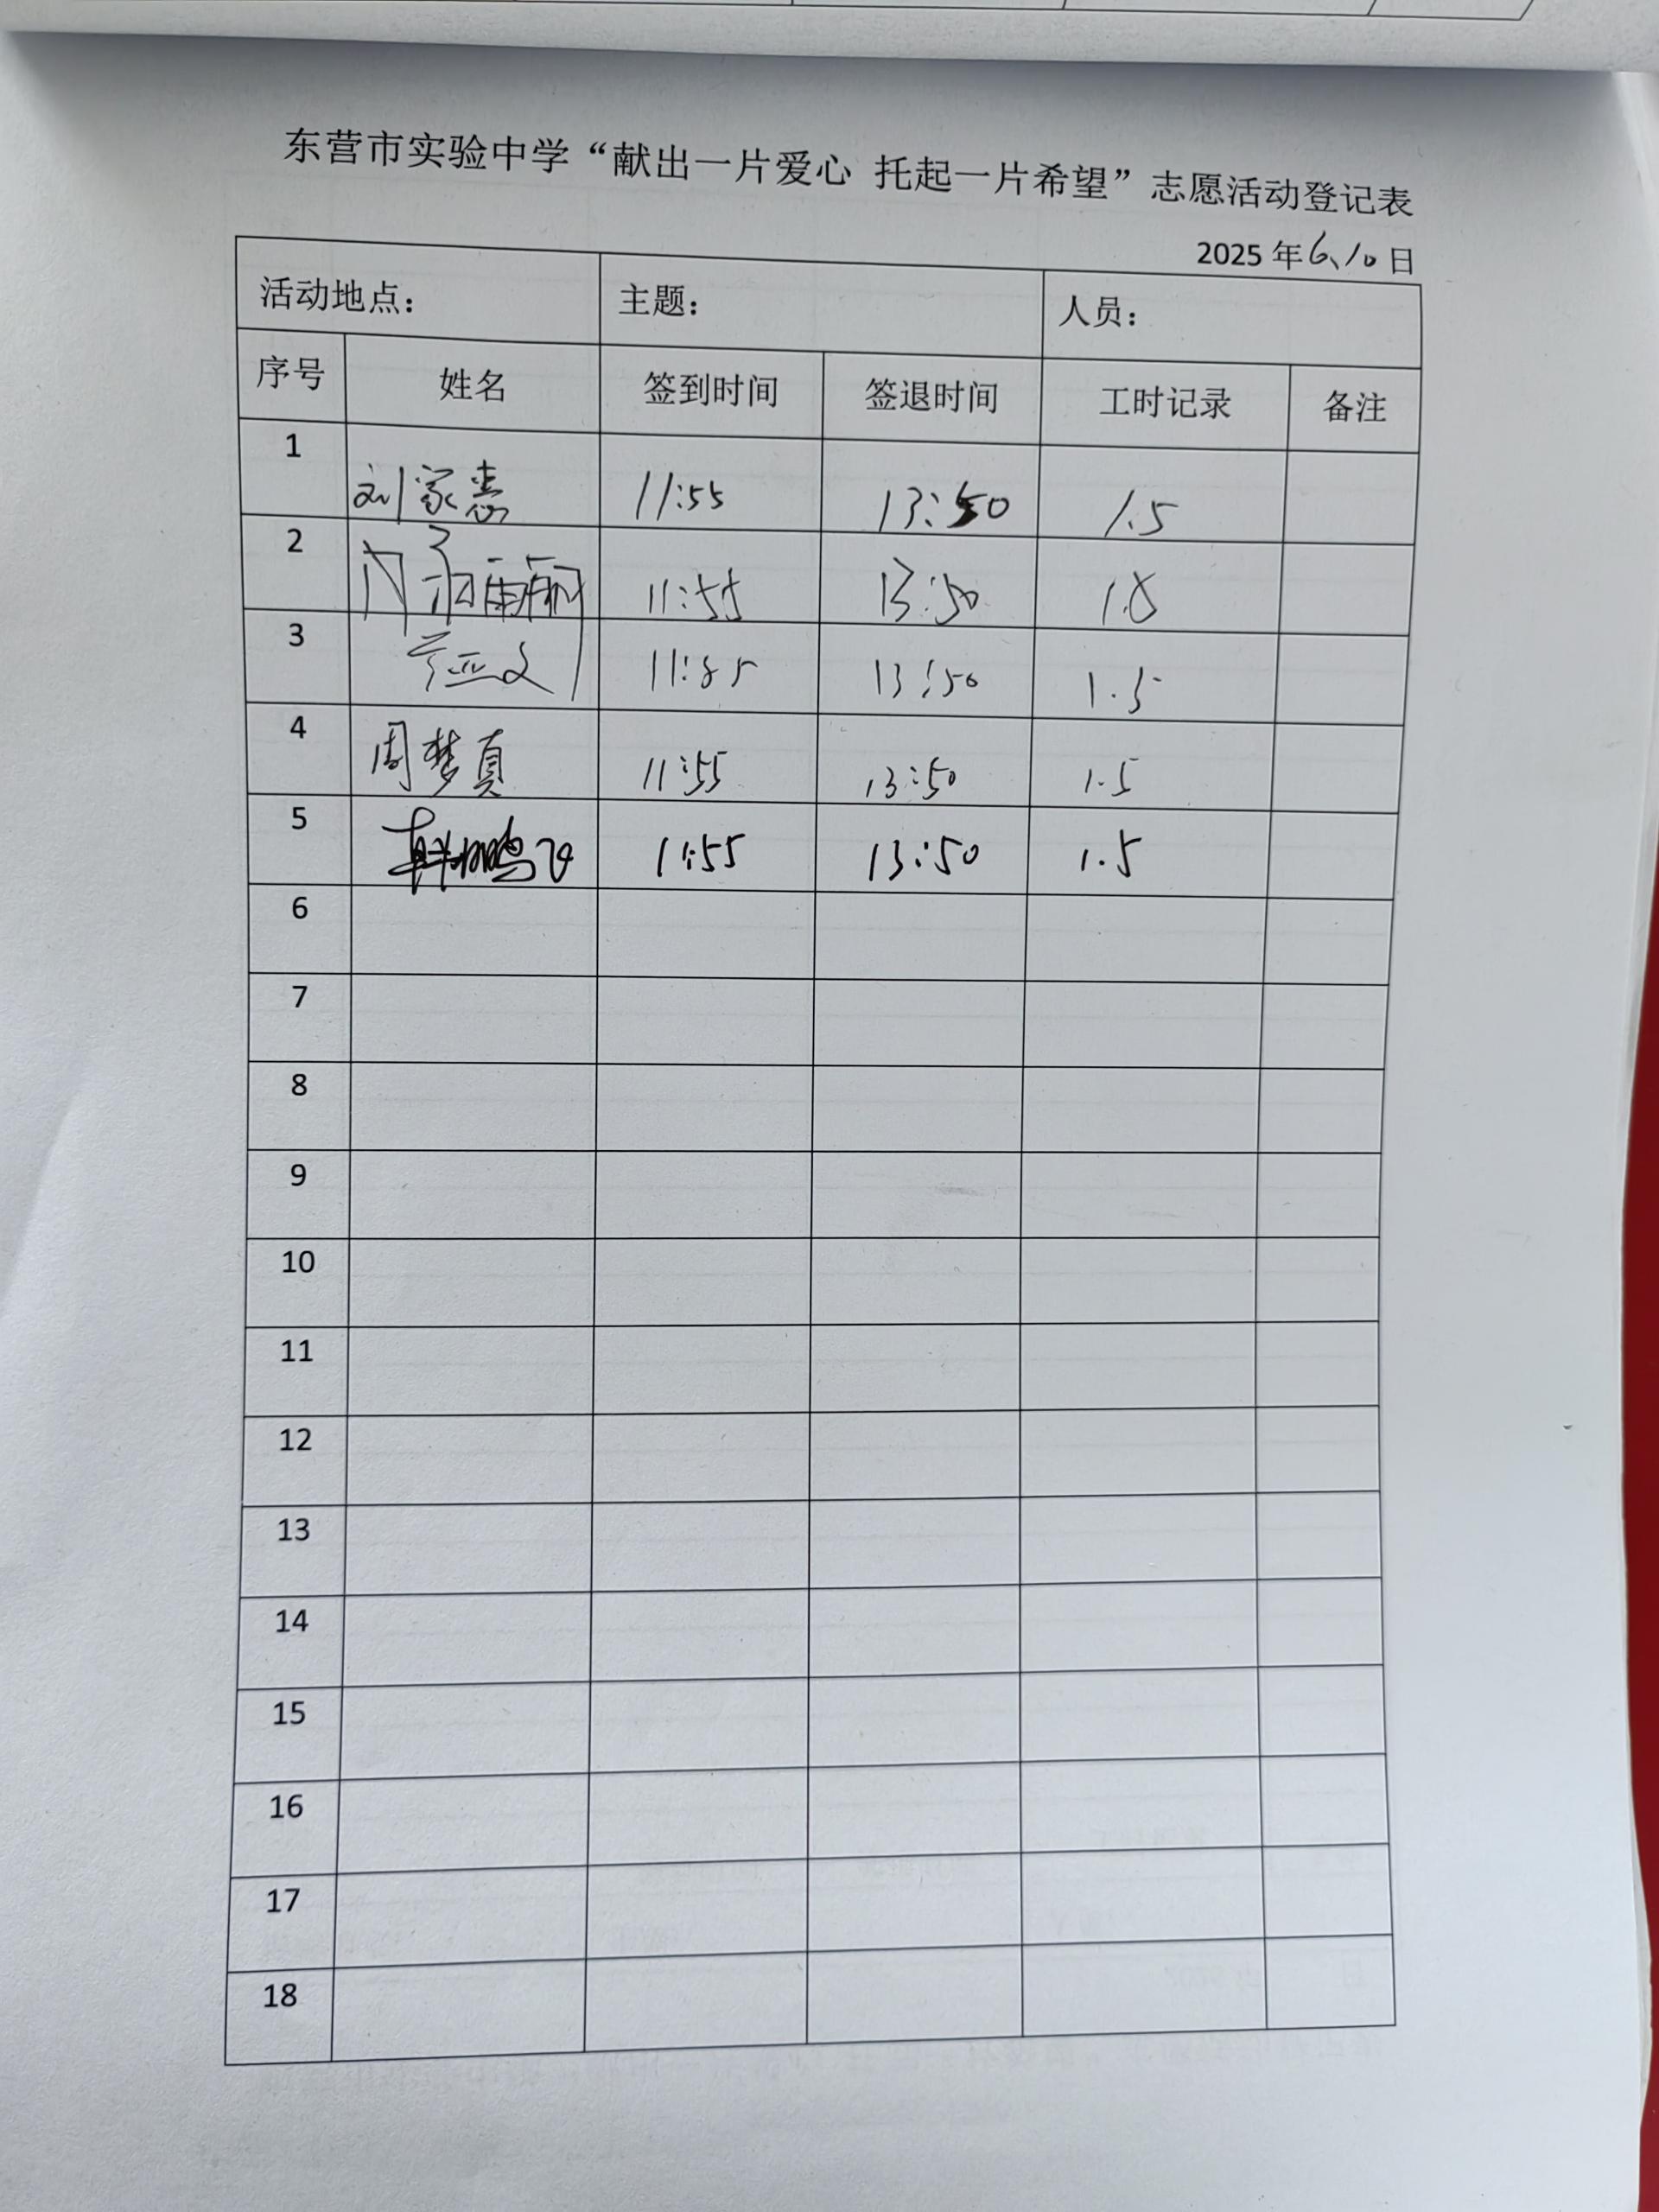 东营市实验中学“献出一片爱心 托起一片希望”志愿活动登记表
2025 年 6、10 日
活动地点： 主题： 人员：
序号 姓名 签到时间 签退时间 工时记录 备注
1 刘家惠 11:55 13:50 1.5
2 11:55 13:50 1.5
3 亚文 11:55 13:50 1.5
4 周梦真 11:55 13:50 1.5
5 韩鹏飞 11:55 13:50 1.5
6
7
8
9
10
11
12
13
14
15
16
17
18